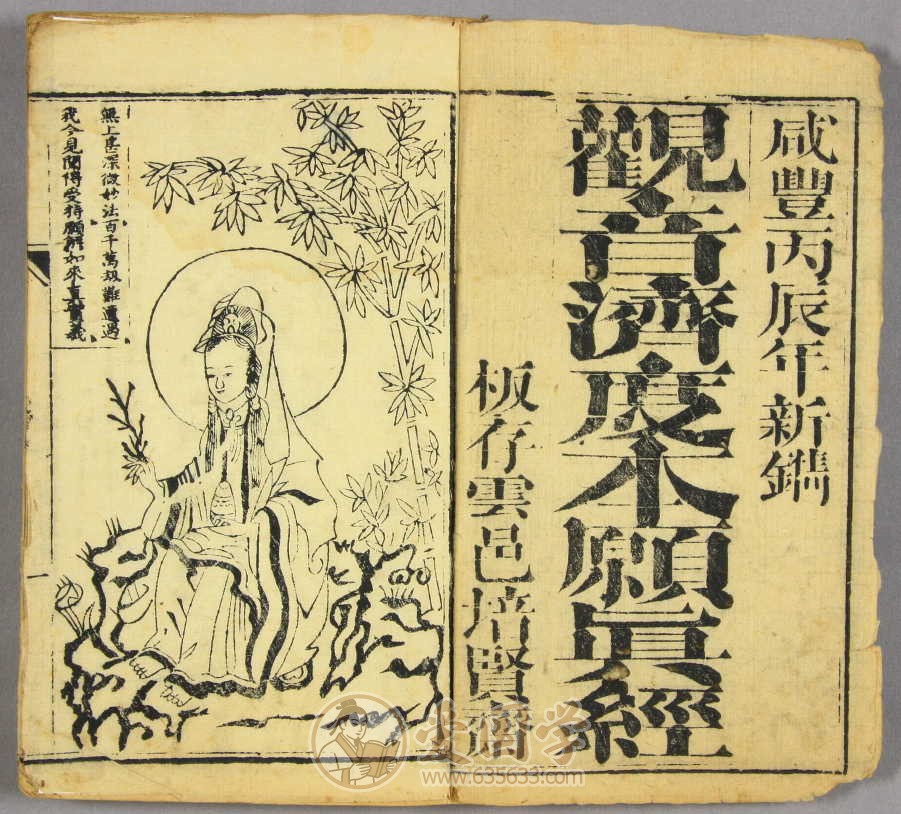 咸豐丙辰年新鐫
觀音濟度本願眞經
板存雲邑培賢齋
無上甚深微妙法百千萬刼難遭遇
我今見聞得受持願解如來眞實義
爱站学
www.635633.com